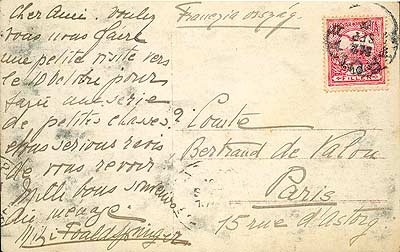 Cher Ami. Voulez
vous nous faire
une petite visite vers
le 10 Octobre pour
faire une serie
de petites chasses?
Nous serions ravis
de vous revoir
Mille bons
du menage
Mizi
Francia ország.
FILLER
Comte
Bertrand de Valou
Paris
15 rue d'Astorg